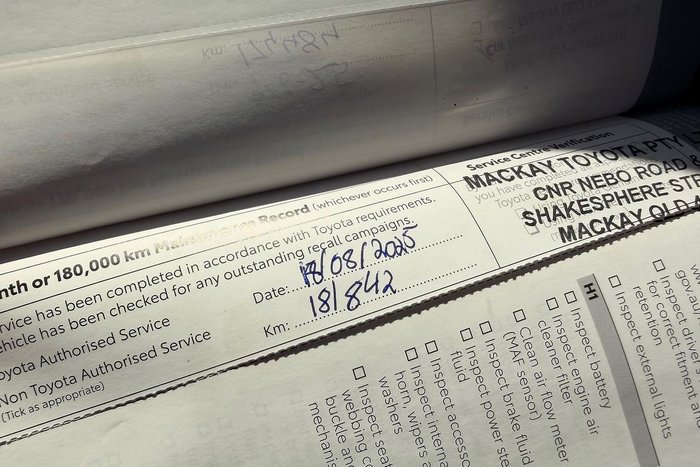 Km: 174484
Service Centre Verification
MACKAY TOYOTA PTY
you have completed
Toyota
CNR NEBO ROAD &
SHAKESPHERE STR
MACKAY QLD 4
nth or 180,000 km Maintenance Record (whichever occurs first)
rvice has been completed in accordance with Toyota requirements.
ehicle has been checked for any outstanding recall campaigns.
Date: 18/08/2025
oyota Authorised Service
Km: 181842
Non Toyota Authorised Service
(Tick as appropriate)
H1
Inspect battery
Inspect engine air
cleaner filter
Clean air flow meter
(MAF sensor)
Inspect brake fluid
Inspect power ste
fluid
Inspect accesso
Inspect interna
horn, wipers a
washers
Inspect seat
webbing co
buckle and
mechanis
Inspect drive
gove
for correct fitment a
retention
Inspect external
lights